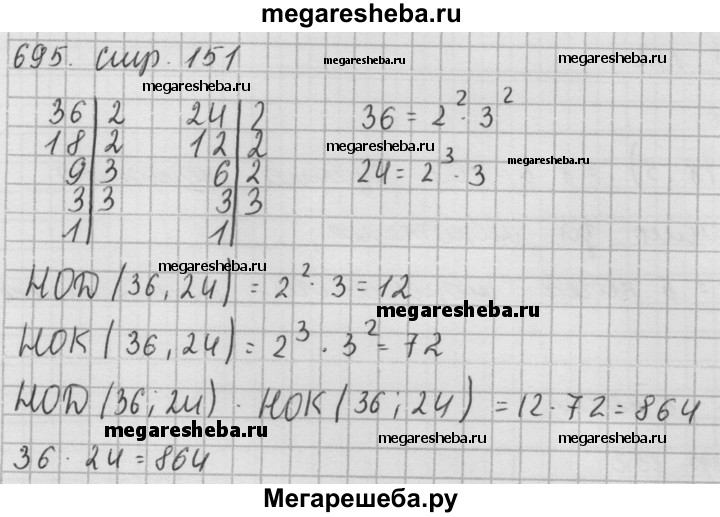 megaresheba.ru
695. стр. 151 megaresheba.ru megaresheba.ru
megaresheba.ru
36|2 24|2 36 = 2² · 3²
18|2 12|2
megaresheba.ru megaresheba.ru
9|3 6|2 24 = 2³ · 3
3|3 3|3
1| 1|
megaresheba.ru
НОД (36, 24) = 2² · 3 = 12
megaresheba.ru
НОК (36, 24) = 2³ · 3² = 72
НОД (36; 24) · НОК (36; 24) = 12 · 72 = 864
megaresheba.ru megaresheba.ru megaresheba.ru
36 · 24 = 864
Мегарешеба.ру